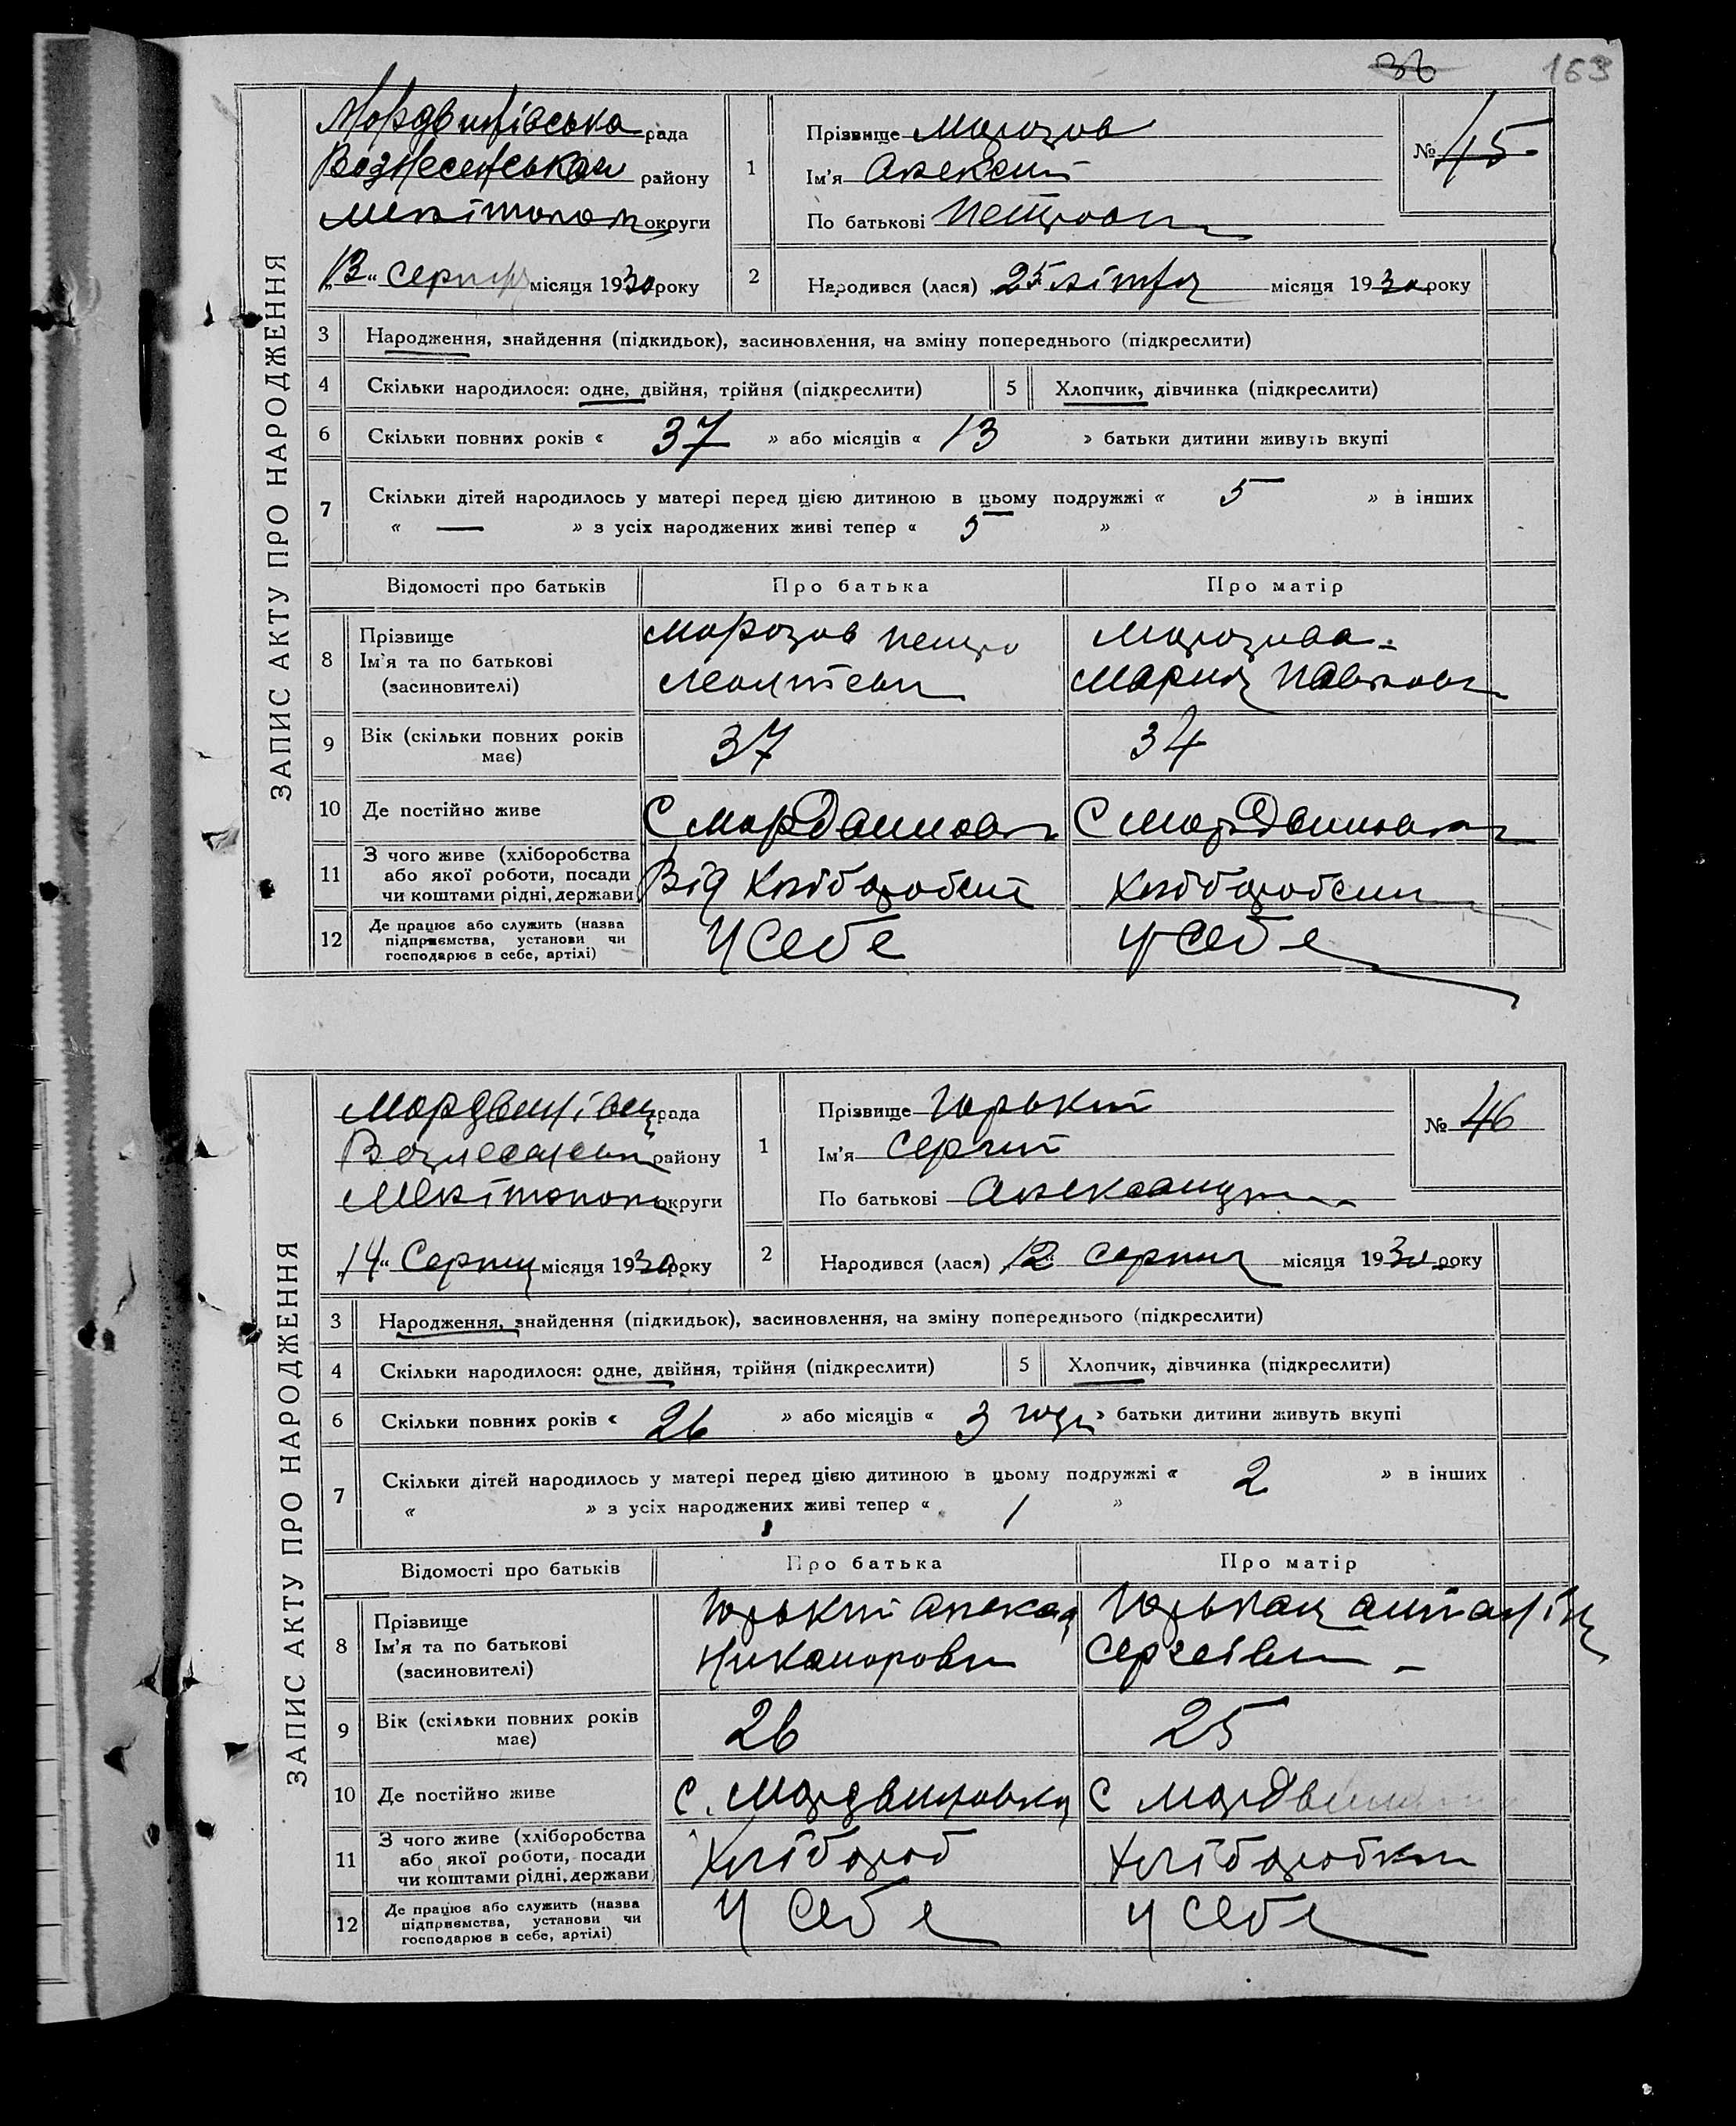 36 163
ЗАПИС АКТУ ПРО НАРОДЖЕННЯ
Мордвинівська рада
Вознесенськои району
округи
"13" серпня місяця 1930 року
1
Прізвище Морозов
Ім'я Алексей
По батькові Петрович
№ 45
2 Народився (лася) 25 літня місяця 1930 року
3 Народження, знайдення (підкидьок), засиновлення, на зміну попереднього (підкреслити)
4 Скільки народилося: одне, двійня, трійня (підкреслити) 5 Хлопчик, дівчинка (підкреслити)
6 Скільки повних років « 37 » або місяців « 13 » батьки дитини живуть вкупі
7 Скільки дітей народилось у матері перед цією дитиною в цьому подружжі « 5 » в інших
« — » з усіх народжених живі тепер « 5 »
Відомості про батьків Про батька Про матір
8 Прізвище
Ім'я та по батькові
(засиновителі)
Морозов Петро
Морозова
Мария Павловн
9 Вік (скільки повних років має) 37 34
10 Де постійно живе С Мордвиновк С Мордвиновк
11 З чого живе (хліборобства
або якої роботи, посади
чи коштами рідні, держави
Від Хлібороб Хлібороб
12 Де працює або служить (назва
підприємства, установи чи
господарює в себе, артілі)
У Себе У Себе
ЗАПИС АКТУ ПРО НАРОДЖЕННЯ
Мордвинівск рада
району
округи
"14" Серпня місяця 1930 року
1
Прізвище Горький
Ім'я Сергий
По батькові Александр
№ 46
2 Народився (лася) 12 серпня місяця 1930 року
3 Народження, знайдення (підкидьок), засиновлення, на зміну попереднього (підкреслити)
4 Скільки народилося: одне, двійня, трійня (підкреслити) 5 Хлопчик, дівчинка (підкреслити)
6 Скільки повних років « 26 » або місяців « 3 года » батьки дитини живуть вкупі
7 Скільки дітей народилось у матері перед цією дитиною в цьому подружжі « 2 » в інших
« » з усіх народжених живі тепер « 1 »
Відомості про батьків Про батька Про матір
8 Прізвище
Ім'я та по батькові
(засиновителі)
Горький Алексад
Никанорови
Горькая
Сергеівн –
9 Вік (скільки повних років має) 26 25
10 Де постійно живе С. Мордвиновка С Мордвин
11 З чого живе (хліборобства
або якої роботи, посади
чи коштами рідні, держави)
Хлібороб Хліборобкы
12 Де працює або служить (назва
підприємства, установи чи
господарює в себе, артілі)
У Себе У Себе